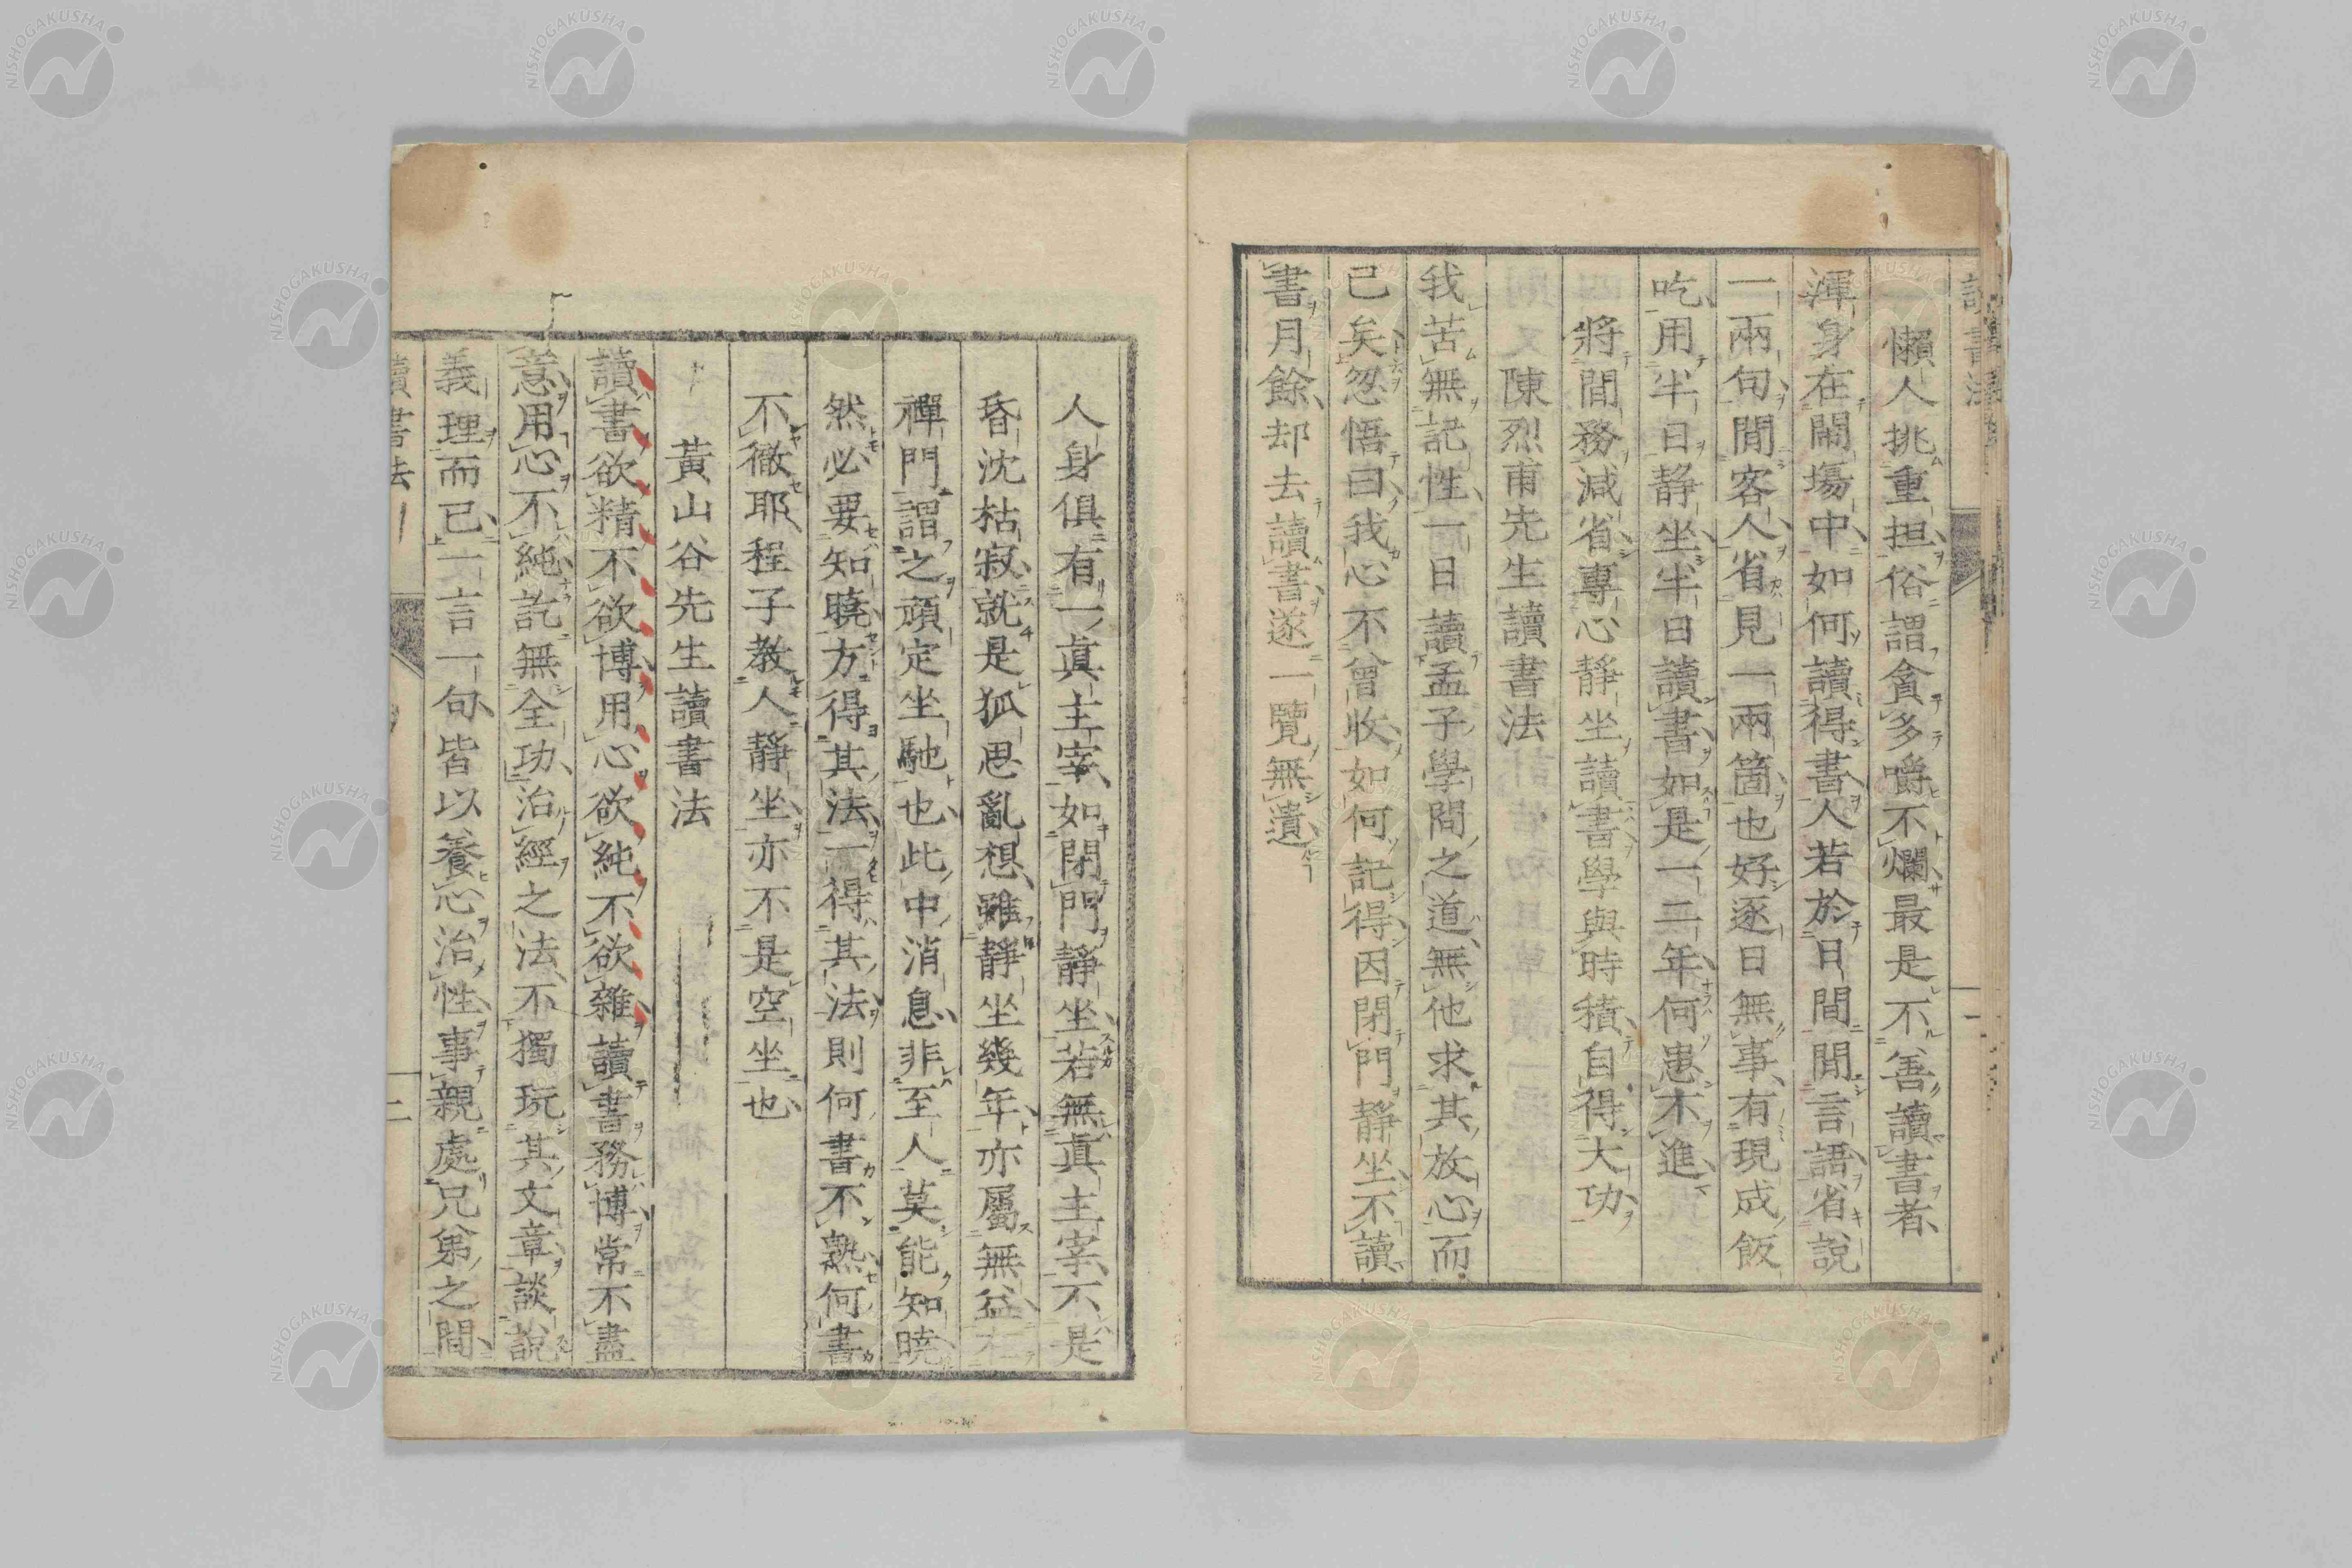 懶人挑重担俗謂貪多嚼不爛最是不善讀書者
渾身在鬧場中如何讀得書人若於日間閒言語省說
一兩句閒客人省見一兩箇也好逐日無事有現成飯
吃用半日靜坐半日讀書如是一二年何患不進
將間務減省專心靜坐讀書學與時積自得大功
陳烈甫先生讀書法
我苦無記性一日讀孟子學問之道無他求其放心而
已矣忽悟曰我心不曾收如何記得因閉門靜坐不讀
書月餘却去讀書遂一覽無遺
人身俱有一眞主宰如閉門靜坐若無眞主宰不是
昏沈枯寂就是狐思亂想雖靜坐幾年亦屬無益
禪門謂之頑定坐馳也此中消息非至人莫能知曉
然必要知曉方得其法一得其法則何書不熟何書
不徹耶程子教人靜坐亦不是空坐也
黃山谷先生讀書法
讀書欲精不欲博用心欲純不欲雜讀書務博常不盡
意用心不純訖無全功治經之法不獨玩其文章談說
義理而已一言一句皆以養心治性事親處兄弟之間
讀書法
二
NISHOGAKUSHA